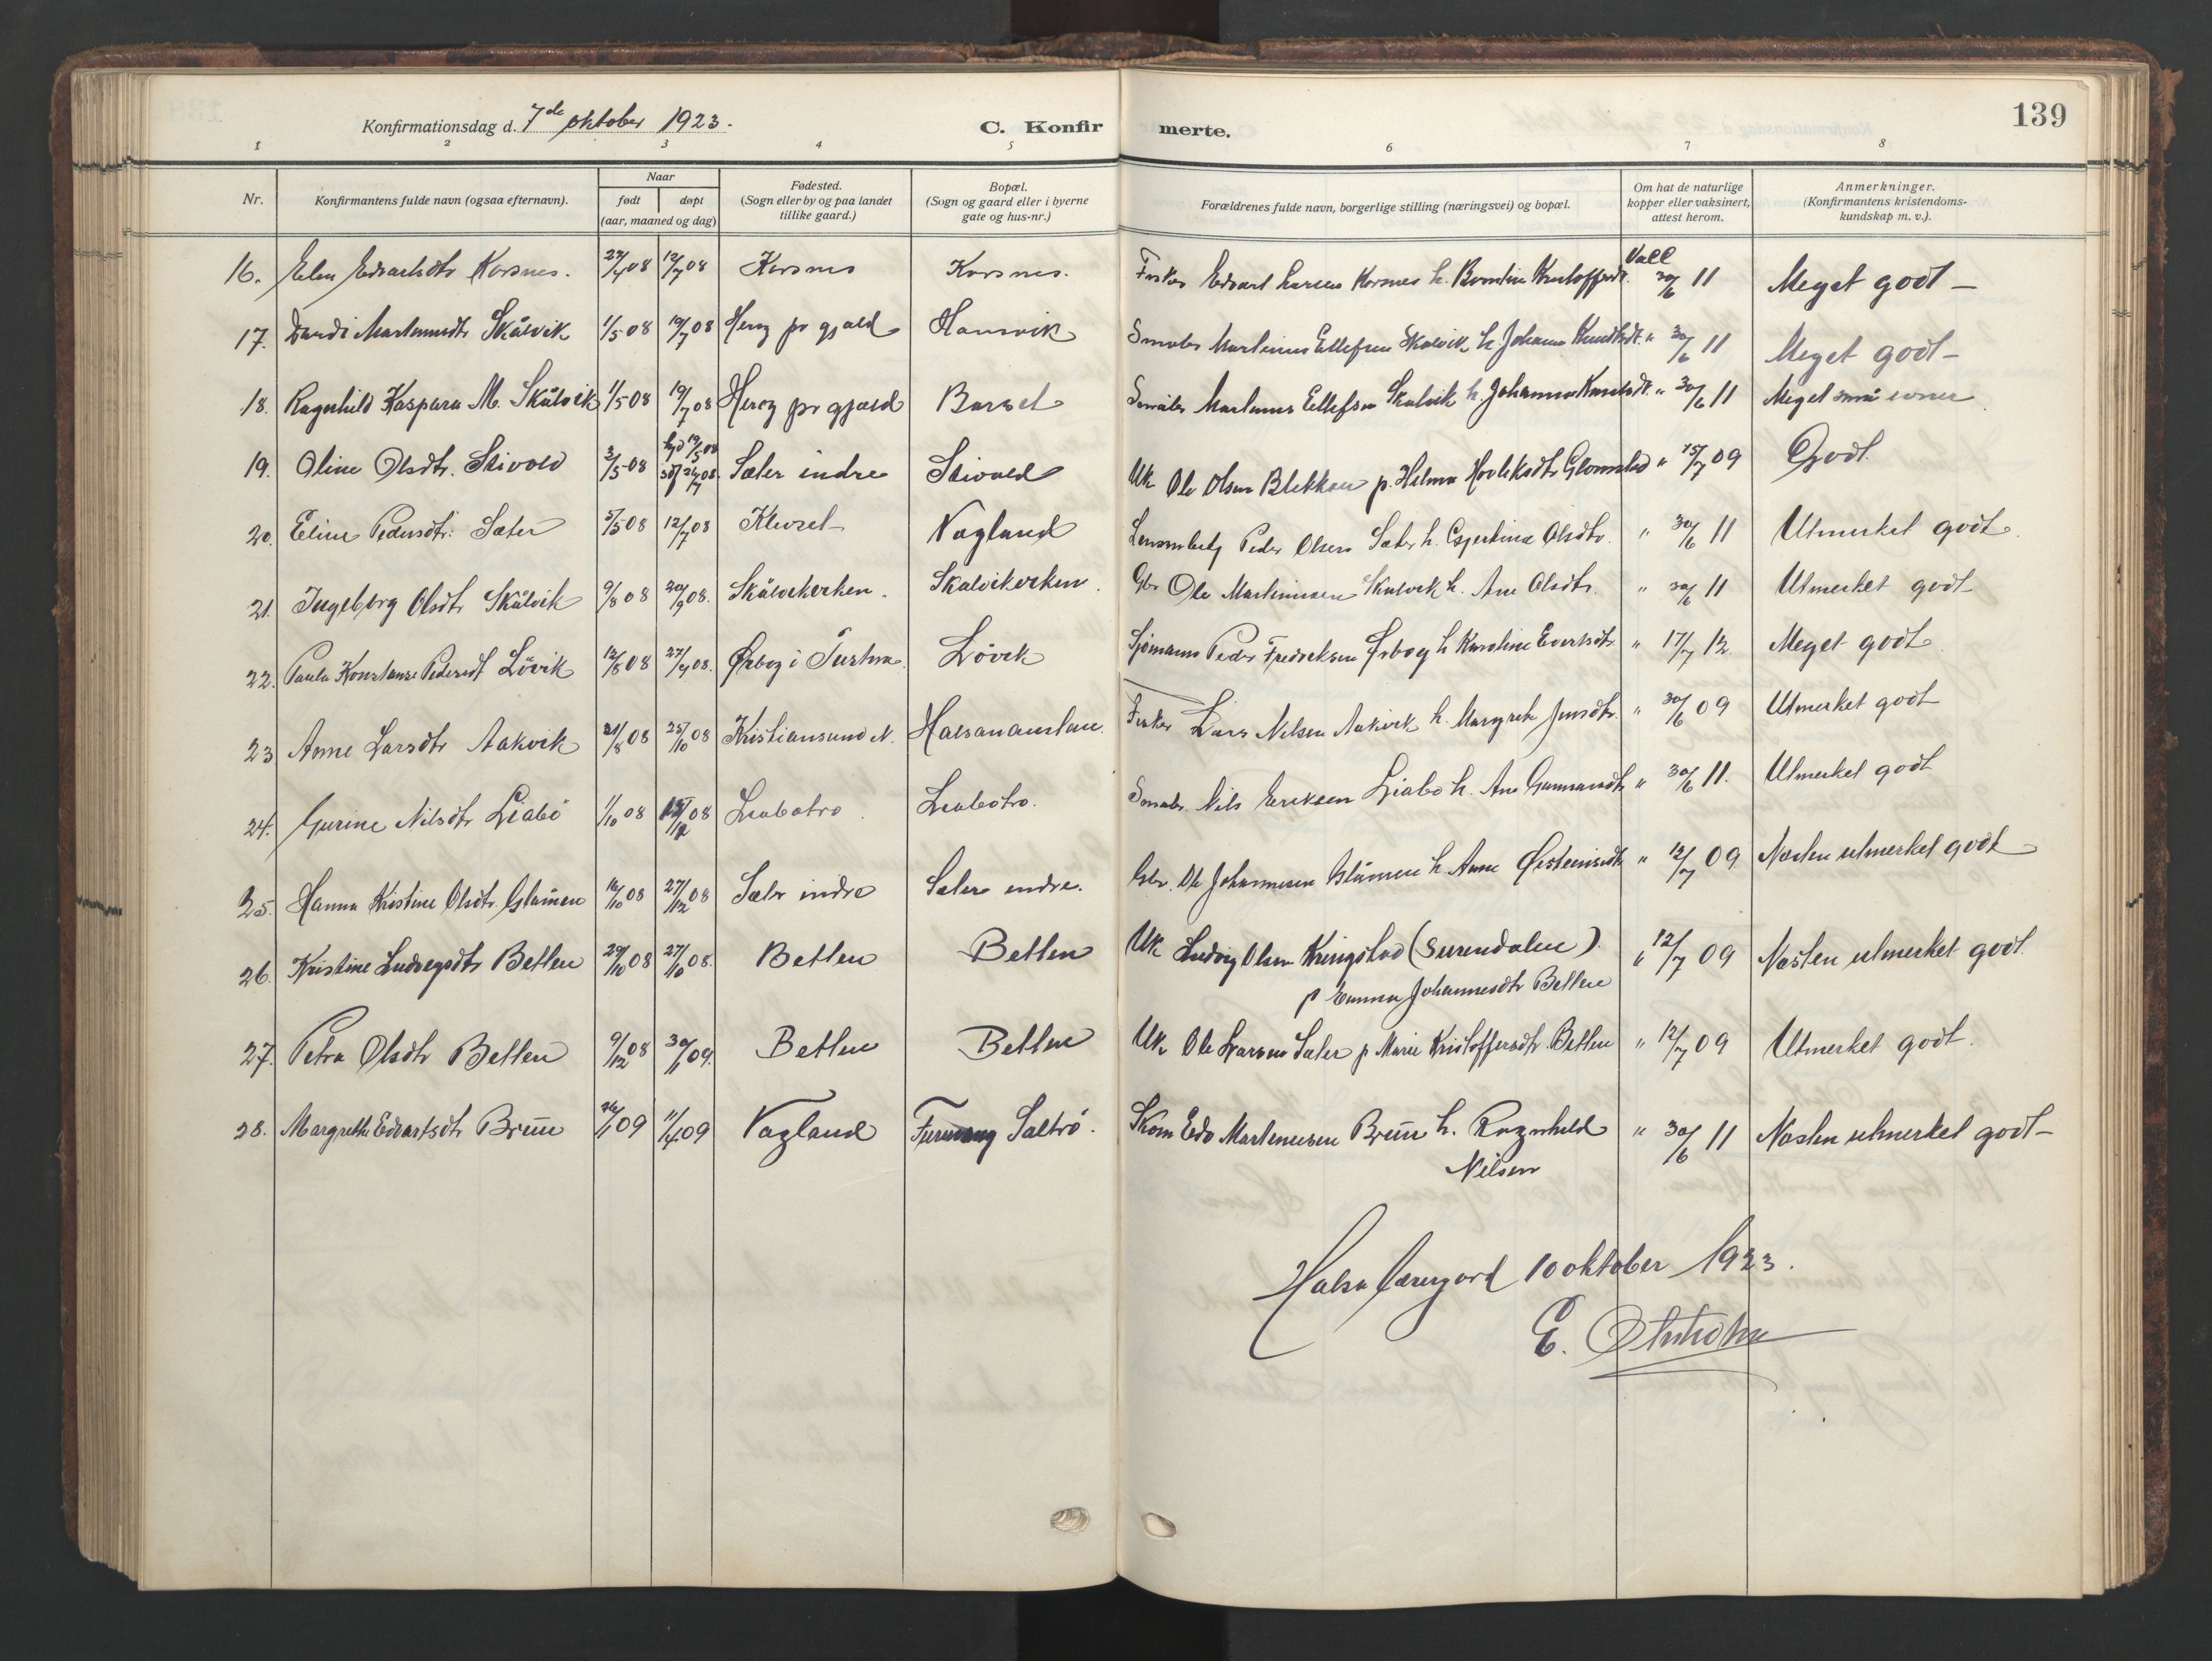 Konfirmationsdag d. 7de oktober 1923.
C. Konfirmerte.
139
1 2 3 4 5 6 7 8
Nr.
Konfirmantens fulde navn (ogsaa efternavn).
Naar
født døpt
(aar, maaned og dag)
Fødested.
(Sogn eller by og paa landet
tillike gaard.)
Bopæl.
(Sogn og gaard eller i byerne
gate og hus-nr.)
Forældrenes fulde navn, borgerlige stilling (næringsvei) og bopæl.
Om hat de naturlige
kopper eller vaksinert,
attest herom.
Anmerkninger.
(Konfirmantens kristendoms-
kundskap m. v.).
16. Elen Edvartsdtr Korsnes. 27/4 08 12/7 08 Korsnes Korsnes. Fisker Edvart Larsen Korsnes h. Kristoffersdt. Vall 30/6 11 Meget godt —
17. Martinusdtr Skålvik 1/5 08 19/7 08 Herøy pr gjæld Hansvik Småbr Martinus Ellefsen Skalvik h. Johanna Knudtsdt. " 30/6 11 Meget godt —
18. Ragnhild Kaspara M. Skålvik 1/5 08 19/7 08 Herøy pr gjæld Barset Småbr Martinus Ellefsen Skalvik h. Johanna Knudtsdt. " 30/6 11 Meget små evner
19. Oline Olsdtr. Stivold 3/5 08 19/5 08 Sæter indre Stivold Uk Ole Olsen Blekken p. Helma Glomstad " 15/7 09 Godt.
20. Eline Pedersdtr. Sæter 5/5 08 12/7 08 Klevset Vagland Peder Olsen Sæter h. Olsdtr. " 30/6 11 Utmerket godt.
21. Ingeborg Olsdtr Skålvik 9/8 08 20/9 08. Skålvikvikken. Skalvikvikken. Gbr Ole Martinusen Skalvik h. Ane Olsdtr. " 30/6 11 Utmerket godt
22. Paula Konstanse Pedersdt Lövik 12/8 08 27/9 08. Ørbog i Tustna. Lövik Sjömann Peder Fredriksen Ørbog h. Karoline Evertsdtr " 17/7 12. Meget godt
23 Anne Larsdtr Aakvik 21/8 08 25/10 08 Kristiansund N. Halsanaustan. Fisker Lars Nilsen Aakvik h. Margrete Jensdtr. " 30/6 09 Utmerket godt
24. Gurine Nilsdtr Liabö 1/10 08 08 Liabötrø. Liabötrø. Småbr. Nils Eriksen Liabö h. Ane Gunnarsdtr " 30/6 11. Utmerket godt
25. Hanna Kristine Olsdtr. Glåmen 16/10 08 27/12 08 Sæter indre Sæter indre. Gbr. Ole Johannesen Glåmen h. Anne Øisteinsdtr " 12/7 09 Næsten utmerket godt
26. Kristine Ludvigsdtr Betten 29/10 08 27/10 08. Betten Betten Uk Ludvig Olsen Kringstad (Surendalen). " 12/7 09 Næsten utmerket godt
p Emma Johannesdtr Betten
27. Petra Olsdtr Betten 9/12 08 30/1 09. Betten Betten Uk Ole Larsen Sæter p Marie Kristoffersdtr Betten " 12/7 09 Utmerket godt.
28. Margrethe Edvartsdtr Bruun 26/1 09 11/4 09 Vagland Saltrö. Skom Edv Martinusen Bruun h. Ragnhild " 30/6 11 Næsten utmerket godt —
Nilsen
Halsa 10 oktober 1923.
E.